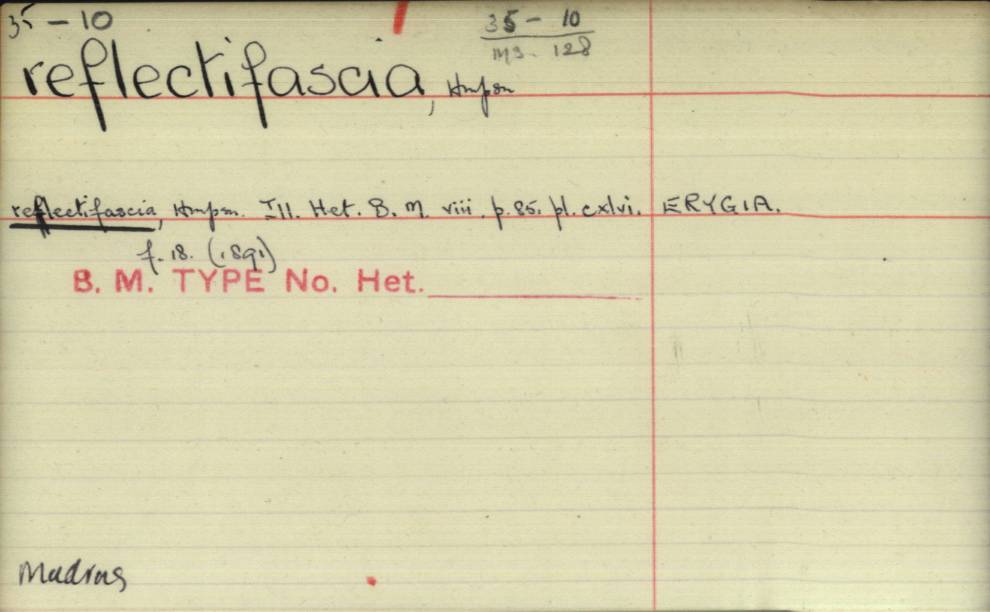 35 - 10
35 - 10
MS. 128
reflectifascia, Hmpsn
reflectifascia, Hmpsn. Ill. Het. B. M. viii. p. 85. pl. cxlvi. ERYGIA.
f. 18. (1891)
B. M. TYPE No. Het.
Madras